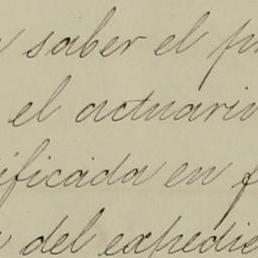 saber el
el actuari
ificada en f
del expedie